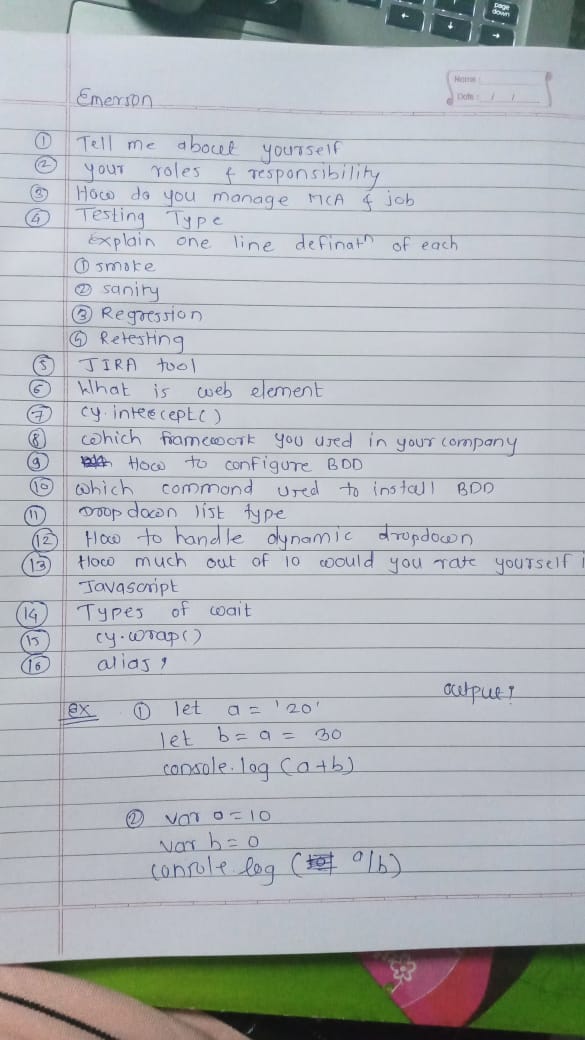 page down
Name :
Date : / /
Emerson
① Tell me about yourself
② your roles & responsibility
③ How do you manage MCA & job
④ Testing Type
Explain one line definatn of each
① smoke
② sanity
③ Regression
④ Retesting
⑤ JIRA tool
⑥ What is web element
⑦ cy.intercept()
⑧ which framework you used in your company
⑨ How to configure BDD
⑩ which command used to install BDD
⑪ Drop down list type
⑫ How to handle dynamic dropdown
⑬ How much out of 10 would you rate yourself i
Javascript
⑭ Types of wait
⑮ cy.wrap()
⑯ alias,
output?
ex ① let a = '20'
let b = a = 30
console.log (a+b)
② var a=10
var b=0
console.log ( a/b)